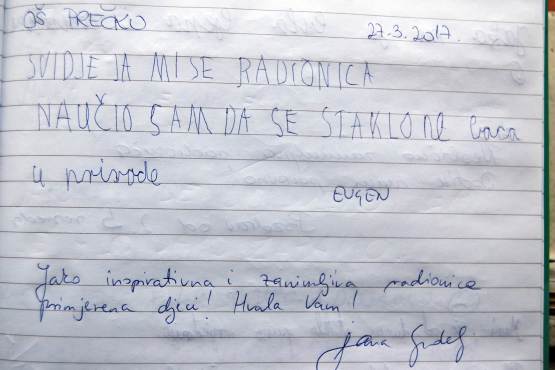 OŠ PREČKO
27.3.2017.
SVIDJE JA MI SE RADIONICA
NAUČIO SAM DA SE STAKLO NE baca
u prirode
EUGEN
Jako inspirativna i zanimljiva radionica
primjerena djeci! Hvala Vam!
Jana